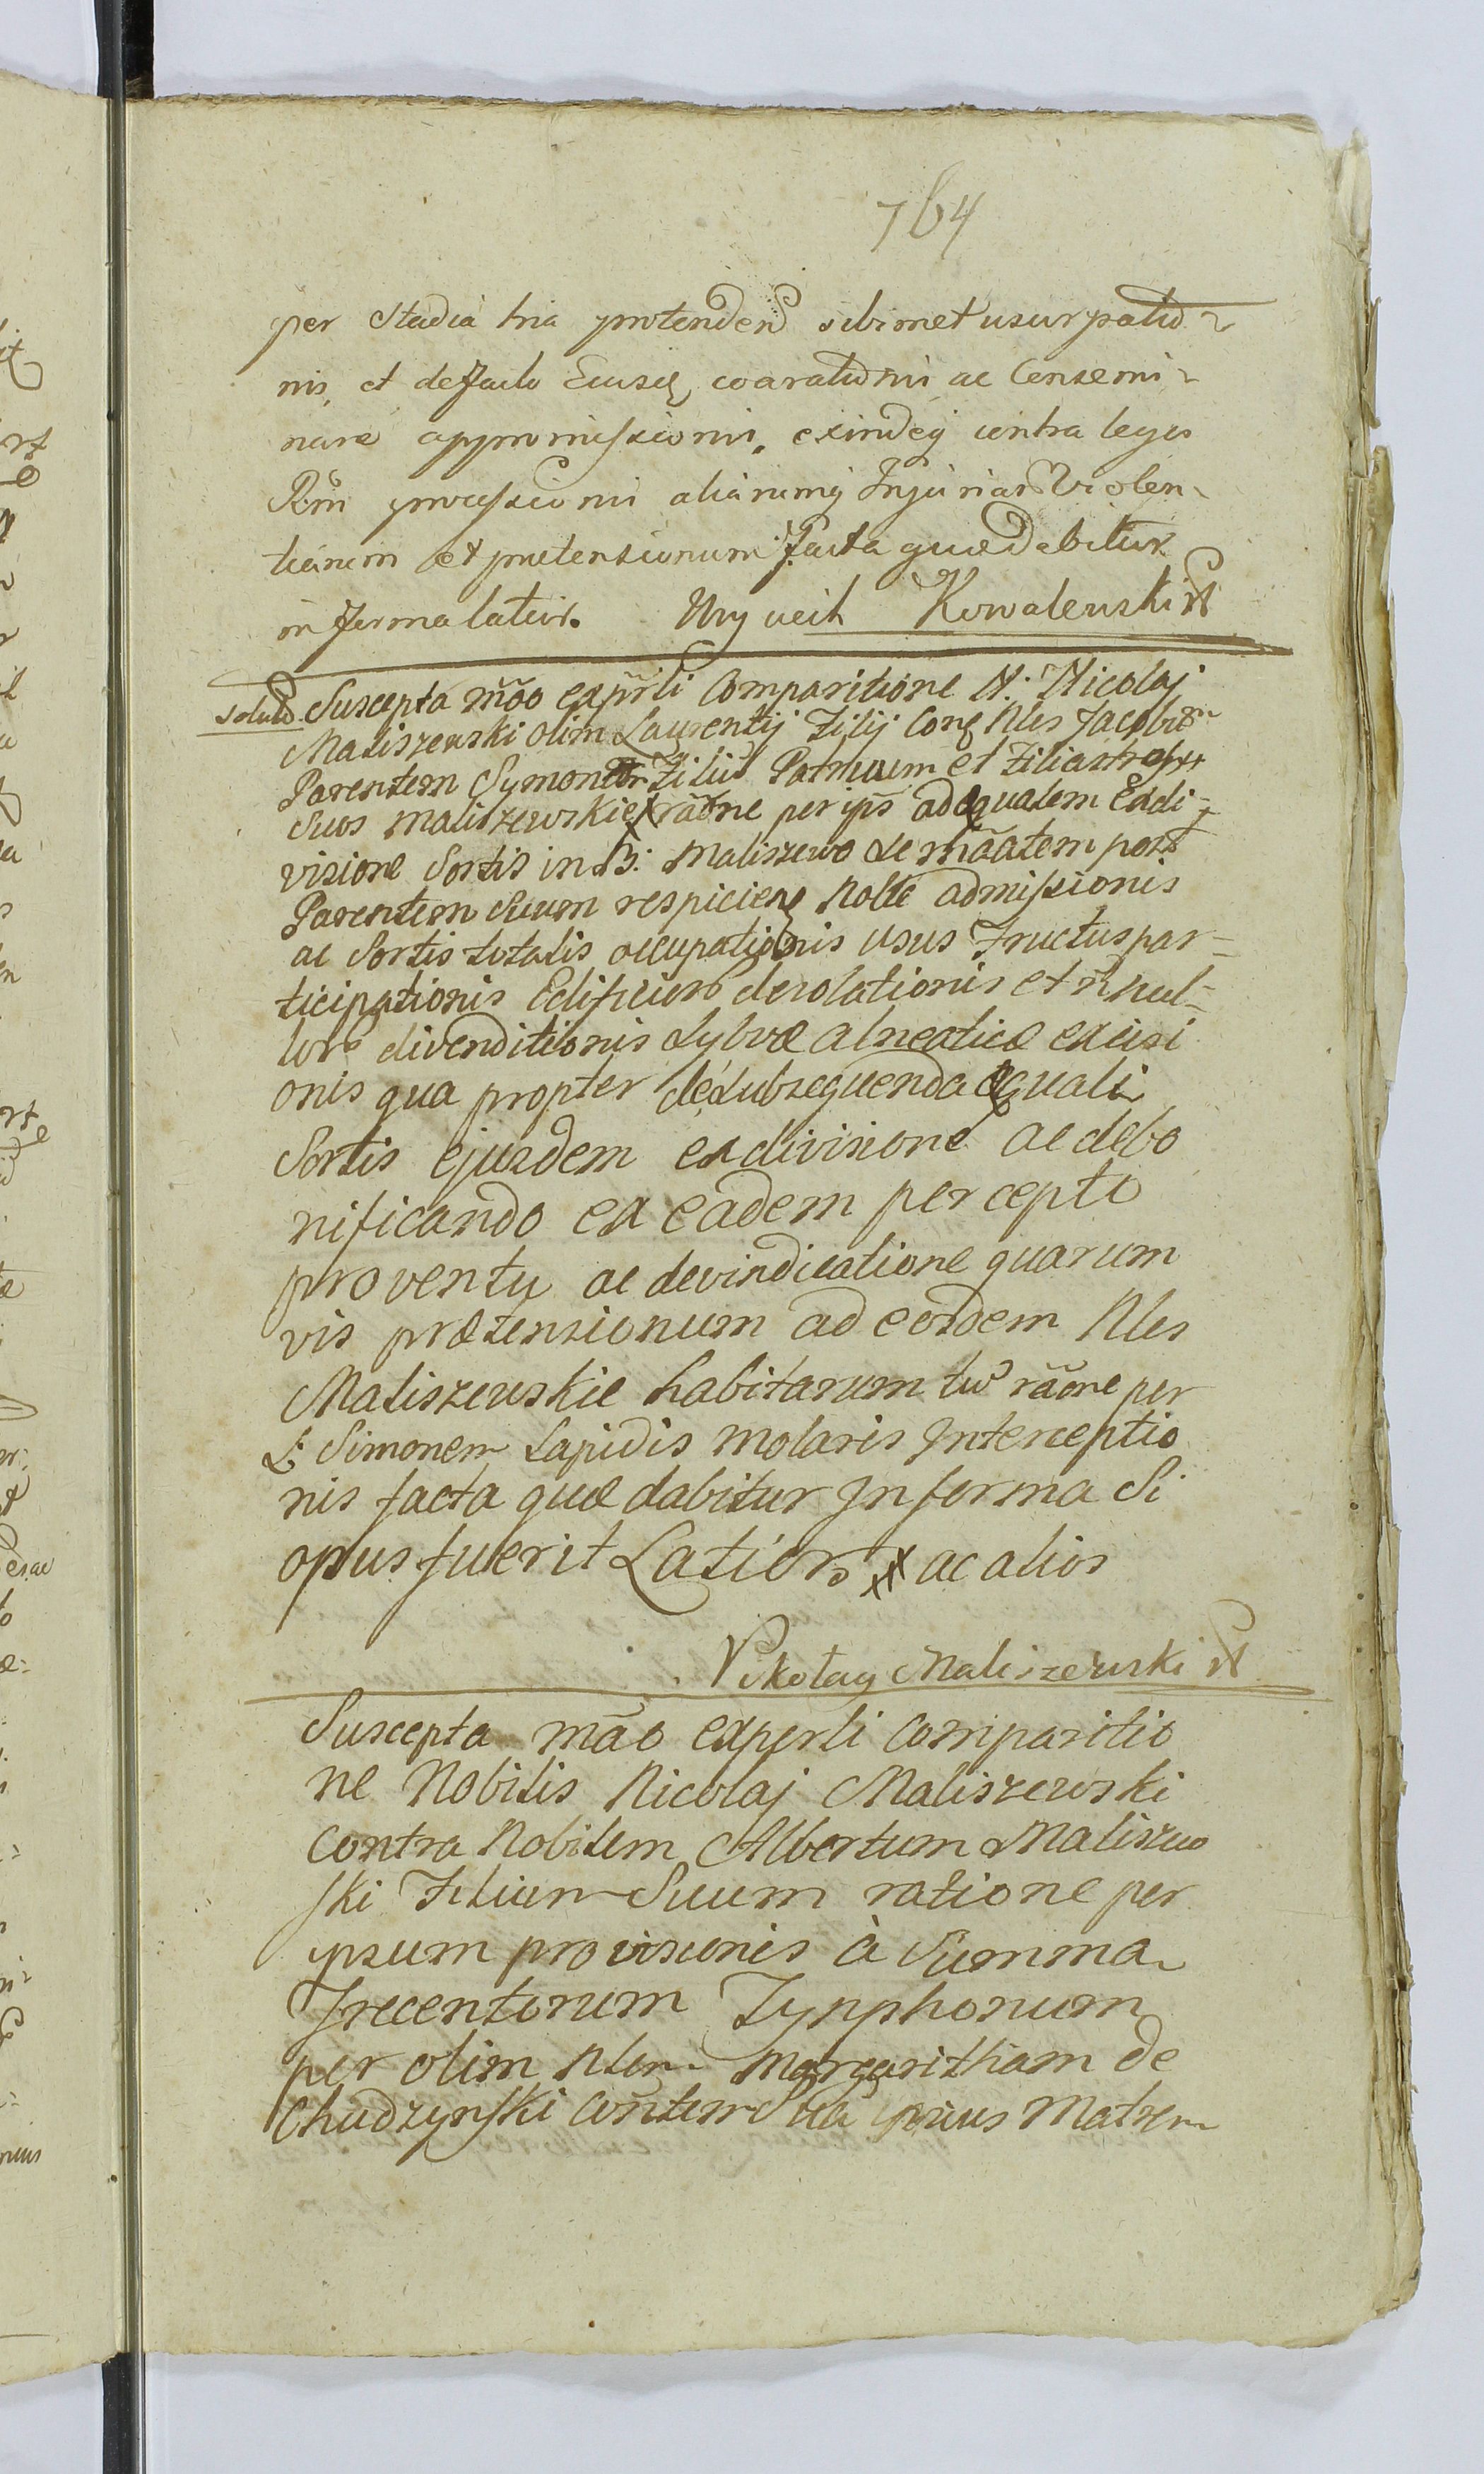 764
per Stadia tria protenden sibimet usurpatio
nis, et defacto Eiusq coarationis ac Censemi
nare appromissionis, exindeq contra leges
Rni processionis aliarumq Injuriar Violen
tiarum et pretensionum facta quæ dabitur
in forma latior. Woyciech Kowalewski
solut. Suscepta mão exprli Comparitione N: Nicolaj
Maliszewski olim Laurentij Filij Con Nles Jacobū
Parentem Symonem Filiū Patruum et Filiastros
Suos Maliszewskie rãone per ips adæqualem Exdi-
visione Sortis in B: Maliszewo de mãatem post
Parentem Suum respicien Nolle admissionis
ac Sortis totalis occupationis usus Fructus par=
ticipationis Edificior desolationis et
divenditionis Sylvæ alneaticæ excisi
onis qua propter de Subsequenda equali
Sortis ejusdem exdivisione ac debo
nificando ex eadem percepto
proventu ac devindicatione quarum
vis prætensionum ad eosdem Nles
Maliszewskie habitarum tū rãone per
E: Simonem Lapidis Molaris Interceptio
nis facta quæ dabitur In forma Si
opus fuerit Latior ac alios
Mikołay Maliszewski
Suscepta mão experli Comparitio
ne Nobilis Nicolaj Maliszewski
Contra Nobilem Albertum Maliszew
ski Filium Suum ratione per
ipsum provisionis à Summa
Trecentorum Tynphonum
per olim Nlem Margaritham de
Chudzynski Contem Suā ipsius Matrem